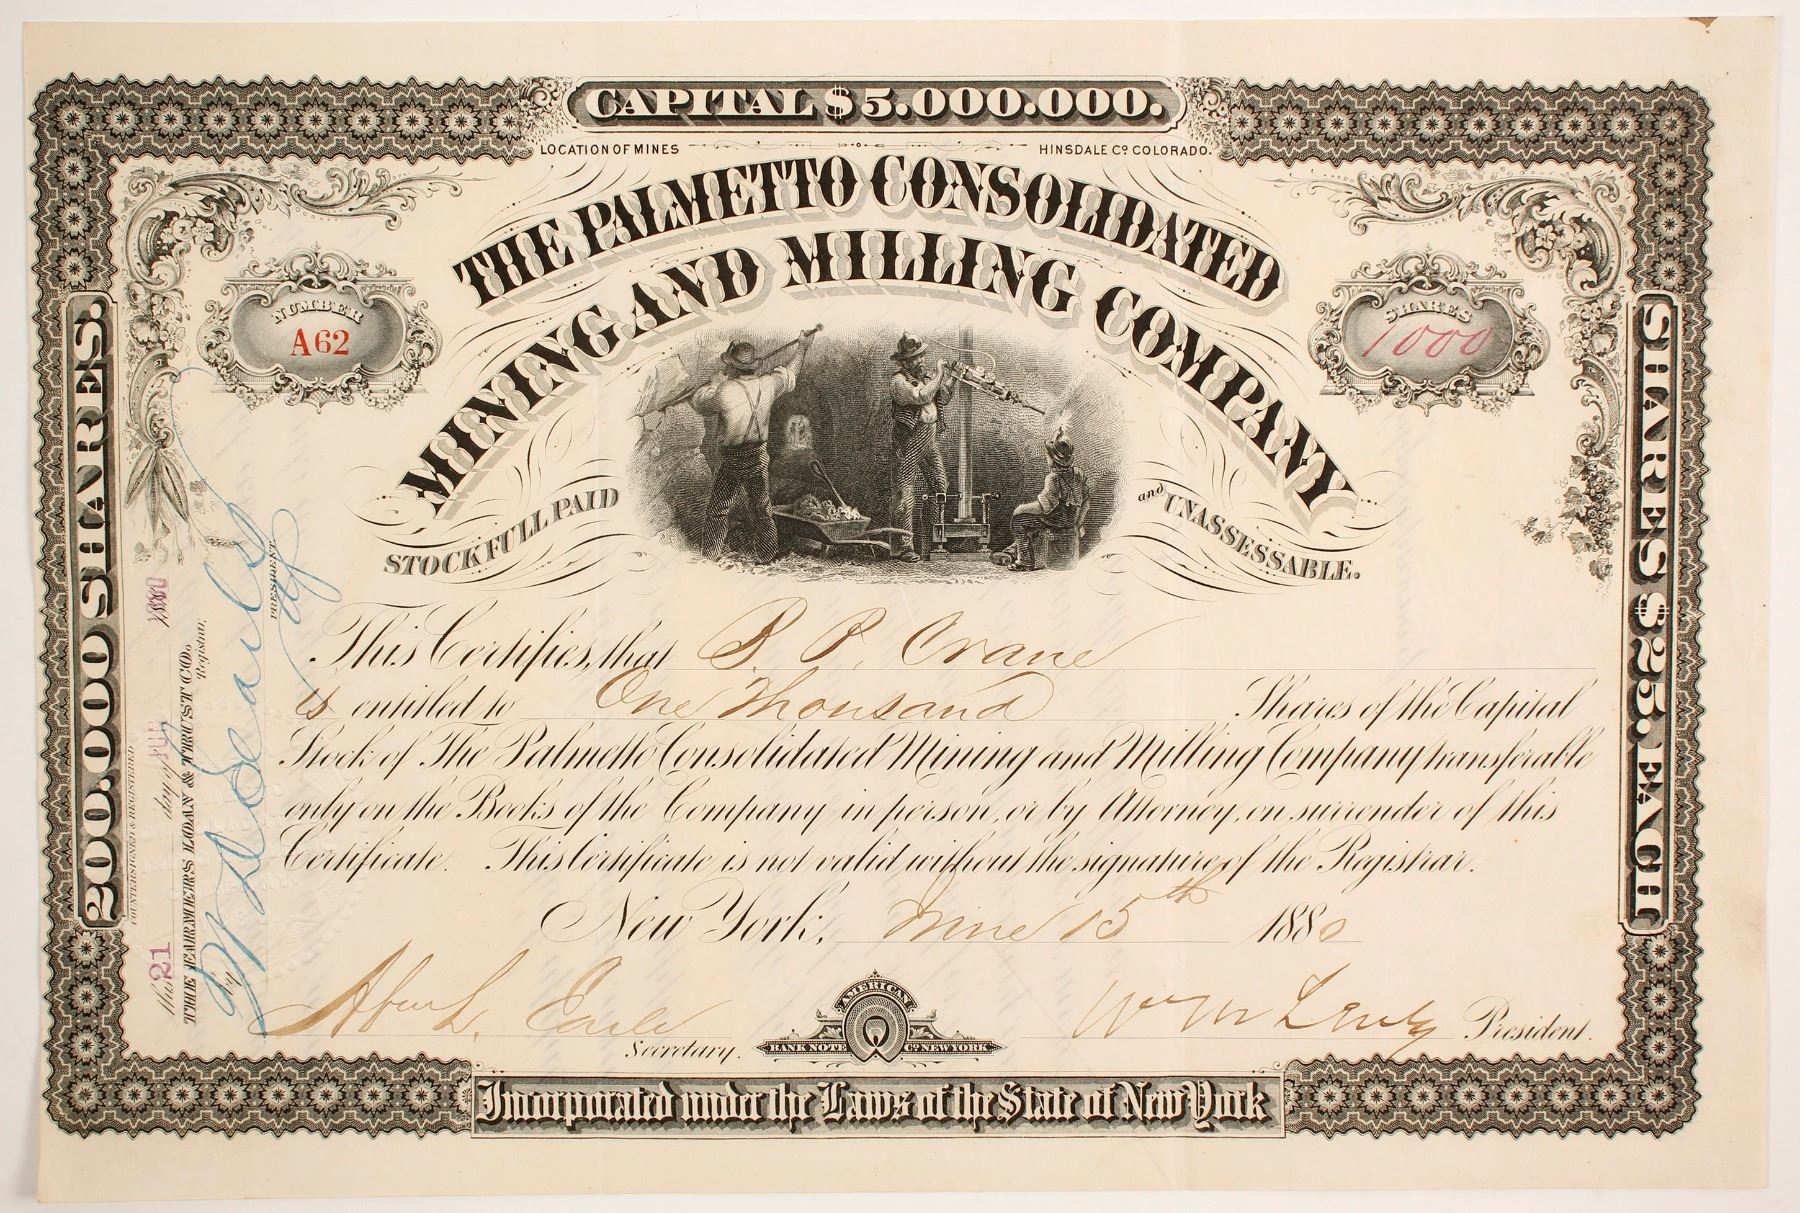 CAPITAL $5.000.000.
LOCATION OF MINES HINSDALE Co COLORADO.
THE PALMETTO CONSOLIDATED
MINING AND MILLING COMPANY
NUMBER
A62
SHARES
1000
STOCK FULL PAID and UNASSESSABLE.
200.000 SHARES.
SHARES $25. EACH
This Certifies, that B. P. Crane
is entitled to One Thousand Shares of the Capital
Stock of The Palmetto Consolidated Mining and Milling Company transferable
only on the Books of the Company in person, or by Attorney, on surrender of this
Certificate. This Certificate is not valid without the signature of the Registrar.
New York, June 15th 1880
Secretary.
Wm M President.
AMERICAN
BANK NOTE Co NEW YORK
Incorporated under the Laws of the State of New York
COUNTERSIGNED & REGISTERED
this 21 day of
THE FARMER'S LOAN & TRUST CO.
Registrar.
By
PRESIDENT